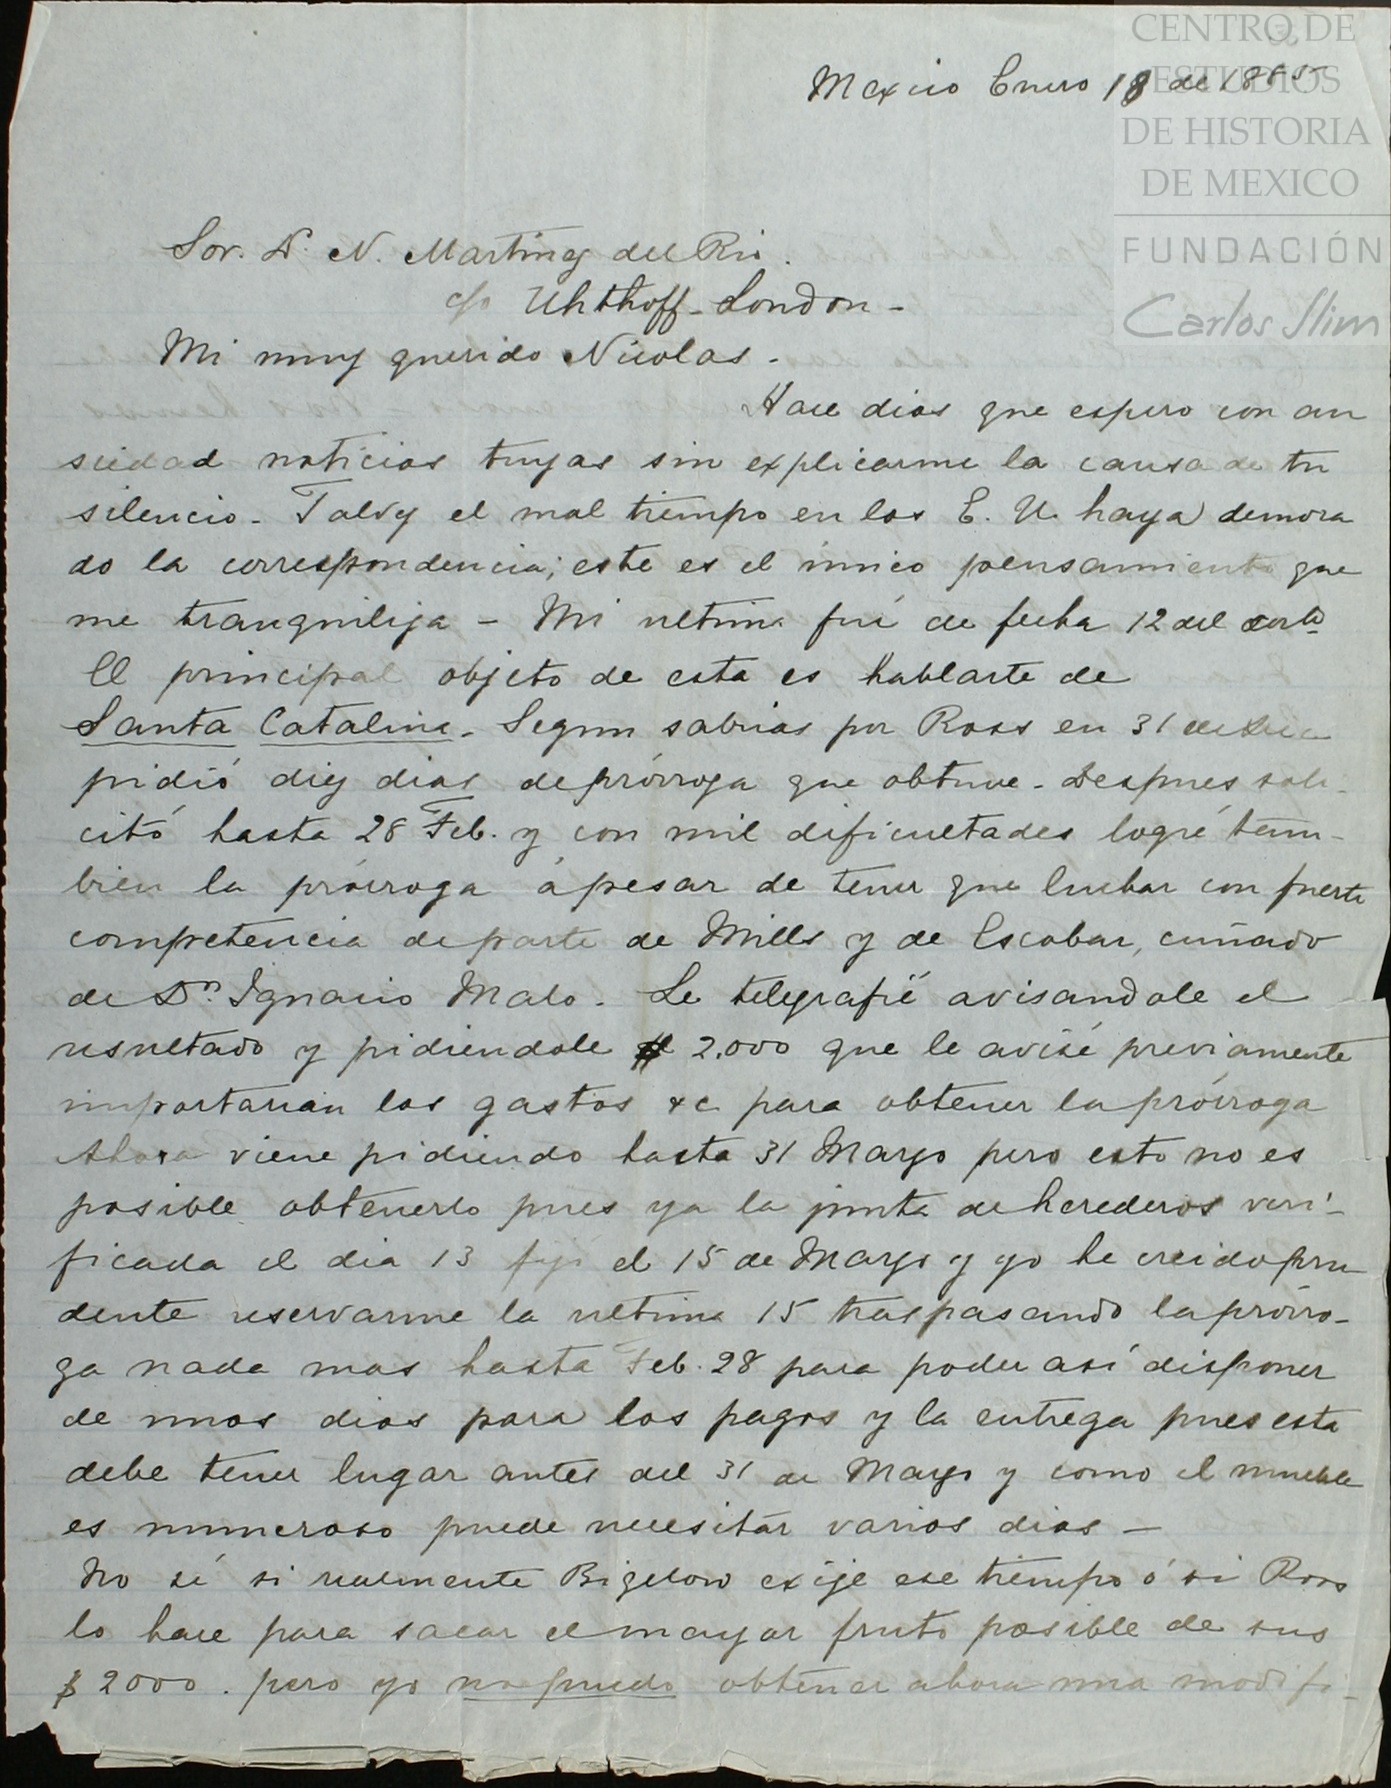 CENTRO DE
ESTUDIOS
DE HISTORIA
DE MEXICO
FUNDACIÓN
Carlos Slim
Mexico Enero 18 de 1885
Sor. D. N. Martinez del Rio.
c/o Uhthoff - London -
Mi muy querido Nicolas -
Hace dias que espero con an
siedad noticias tuyas sin explicarme la causa de tu
silencio - Talvez el mal tiempo en los E. U. haya demora
do la correspondencia; este es el único pensamiento que
me tranquiliza - Mi ultima fué de fecha 12 del corte
El principal objeto de esta es hablarte de
Santa Catalina - Segun sabrias por Ross en 31 de Dic
pidió diez dias de prórroga que obtuve - Despues soli-
citó hasta 28 Feb. y con mil dificultades logré tam-
bien la prórroga ápesar de tener que luchar con fuerte
competencia departe de Mills y de Escobar, cuñado
de Dn. Ignacio Malo - Le telegrafié avisandole el
resultado y pidiendole $ 2.000 que le avisé previamente
importarian los gastos &c para obtener la prórroga
Ahora viene pidiendo hasta 31 Marzo pero esto no es
posible obtenerlo pues ya la junta de herederos veri-
ficada el dia 13 fijó el 15 de Marzo y yo he creido pru
dente reservarme la ultima 15 traspasando la prórro-
ga nada mas hasta Feb. 28 para poder así disponer
de unos dias para los pagos y la entrega pues esta
debe tener lugar antes del 31 de Marzo y como el mueble
es numeroso puede necesitar varios dias -
No sé si realmente Bigelow exije ese tiempo ó si Ross
lo hace para sacar el mayor fruto posible de sus
$ 2000. pero yo no puedo obtener ahora una modifi-